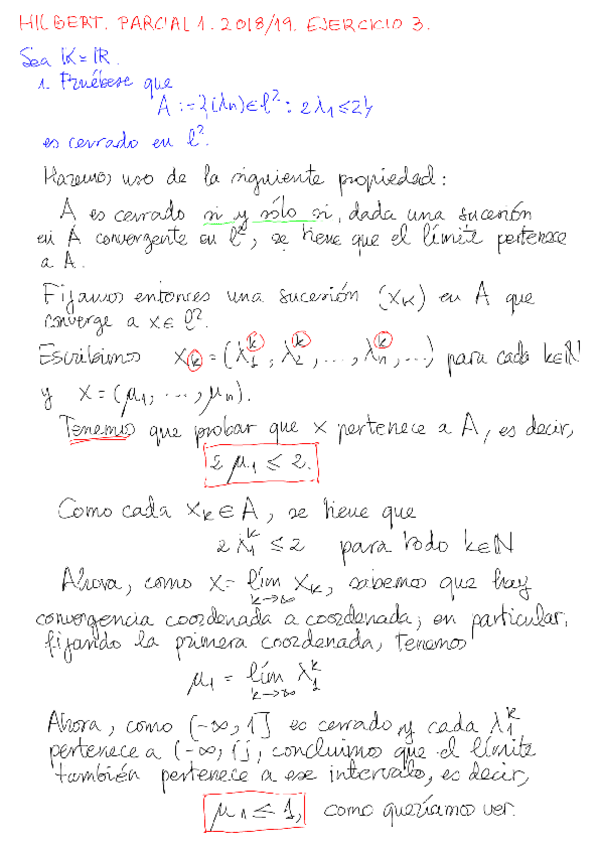 HILBERT. PARCIAL 1. 2018/19. EJERCICIO 3.
Sea K=ℝ.
1. Pruébese que
A := {(λn) ∈ ℓ² : 2λ₁ ≤ 2}
es cerrado en ℓ².
Haremos uso de la siguiente propiedad:
A es cerrado si y sólo si, dada una sucesión
en A convergente en ℓ², se tiene que el límite pertenece
a A.
Fijamos entonces una sucesión (xₖ) en A que
converge a x ∈ ℓ².
Escribimos xₖ = (λ₁ᵏ, λ₂ᵏ, ..., λₙᵏ, ...) para cada k∈ℕ
y x = (μ₁, ..., μₙ).
Tenemos que probar que x pertenece a A, es decir,
2 μ₁ ≤ 2.
Como cada xₖ ∈ A, se tiene que
2 λ₁ᵏ ≤ 2 para todo k∈ℕ
Ahora, como x = lím xₖ, sabemos que hay
k→∞
convergencia coordenada a coordenada; en particular,
fijando la primera coordenada, tenemos
μ₁ = lím λ₁ᵏ
k→∞
Ahora, como (-∞, 1] es cerrado y cada λ₁ᵏ
pertenece a (-∞, 1], concluimos que el límite
también pertenece a ese intervalo, es decir,
μ₁ ≤ 1, como queríamos ver.